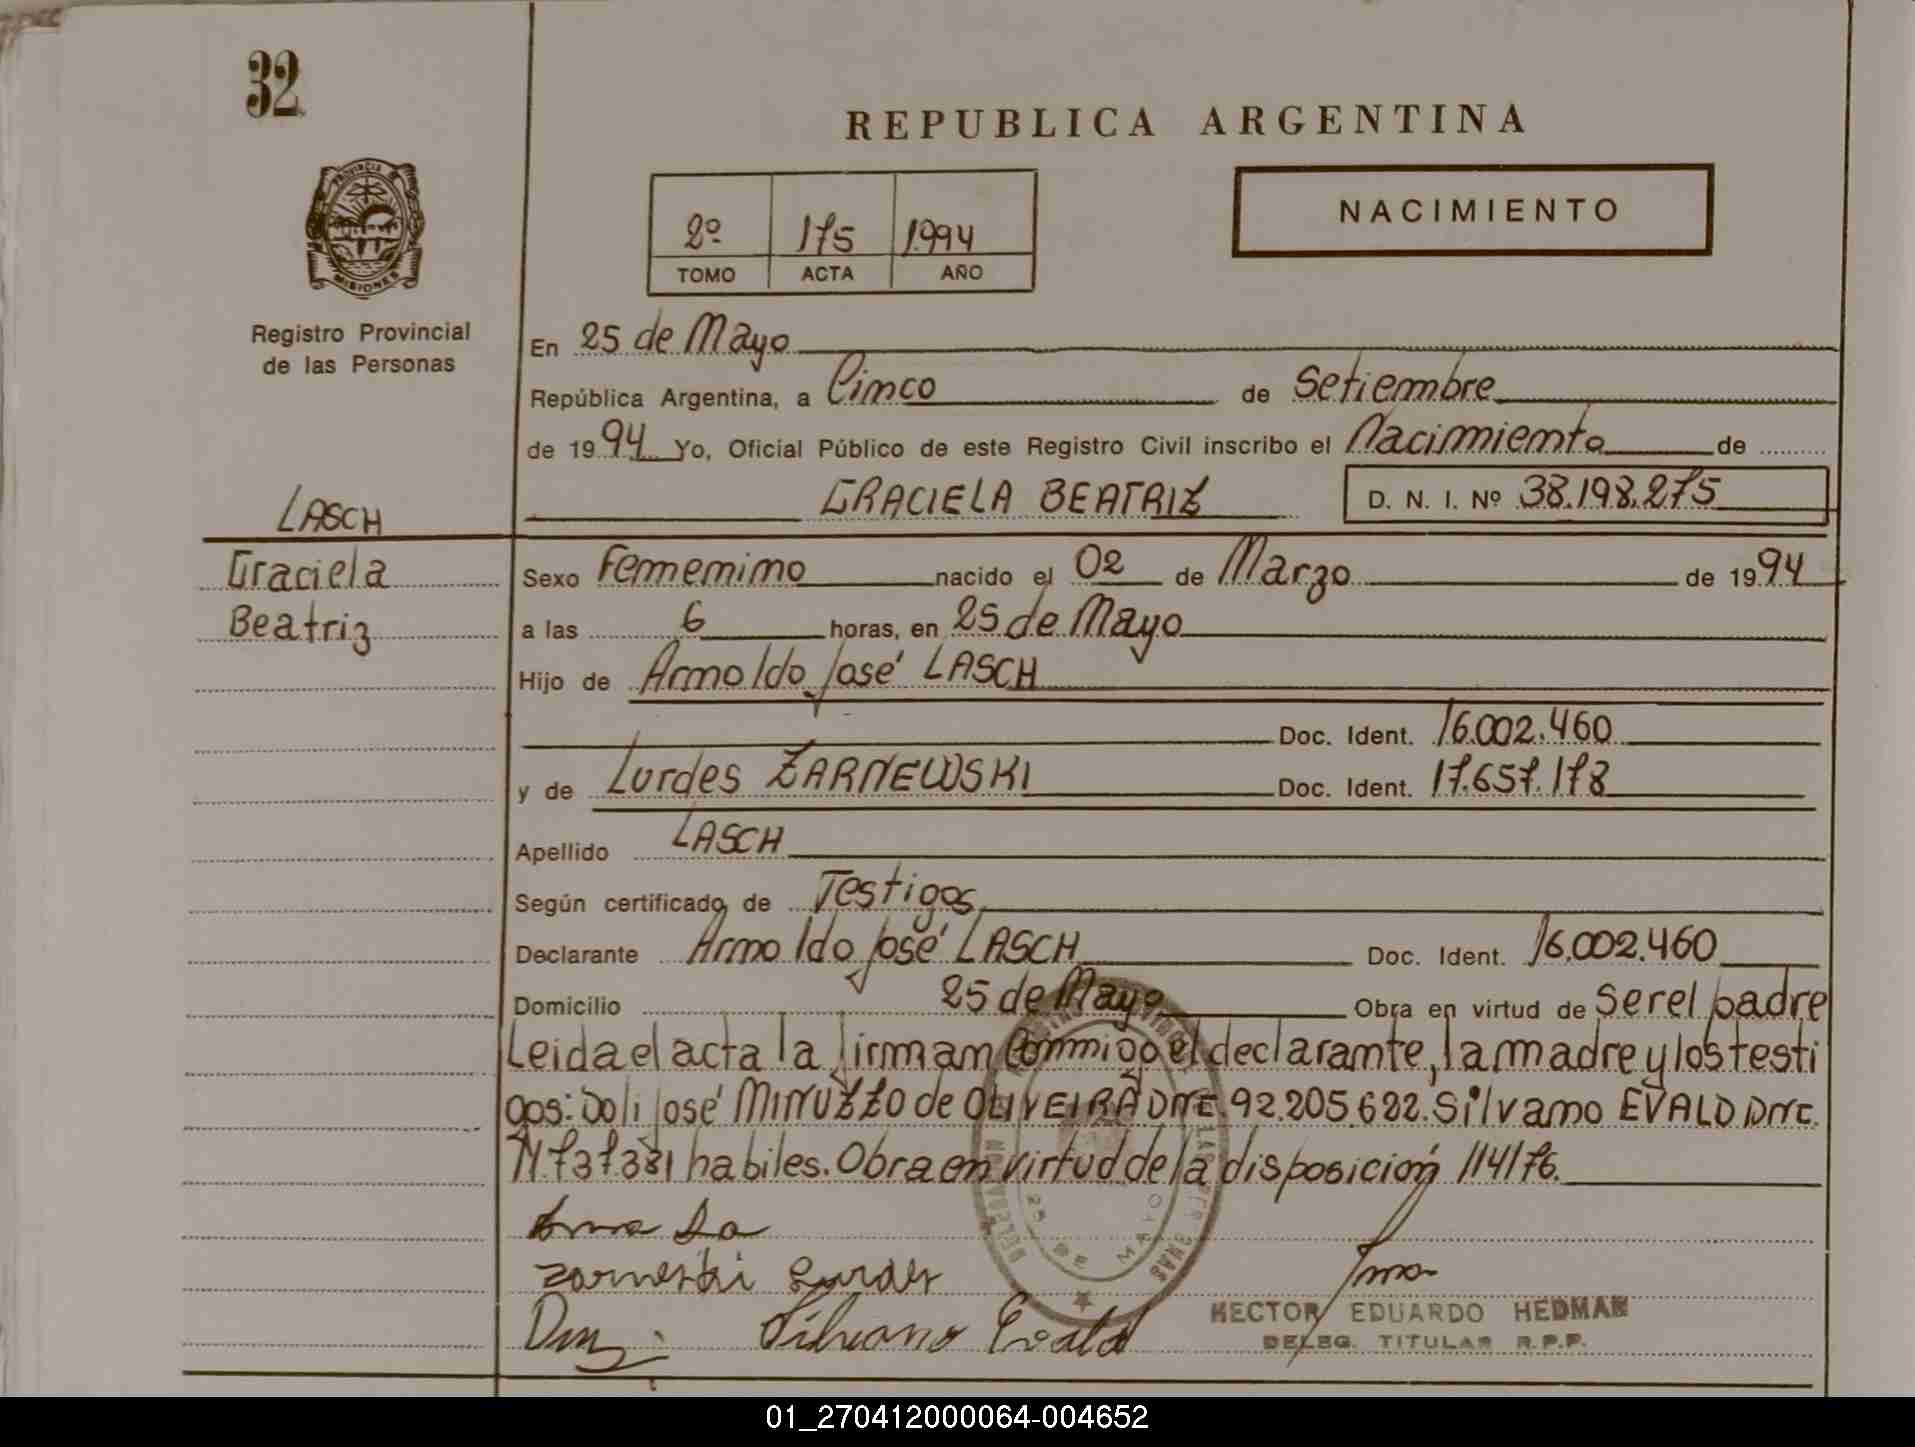 32
REPUBLICA ARGENTINA
PROVINCIA DE
MISIONES
NACIMIENTO
2º 175 1994
TOMO ACTA AÑO
Registro Provincial
de las Personas
En 25 de Mayo
República Argentina, a Cinco de Setiembre
de 1994 Yo, Oficial Público de este Registro Civil inscribo el Nacimiento de
GRACIELA BEATRIZ D. N. I. Nº 38.198.275
LASCH
Graciela
Beatriz
Sexo Femenino nacido el 02 de Marzo de 1994
a las 6 horas, en 25 de Mayo
Hijo de Arnoldo José LASCH
Doc. Ident. 16.002.460
y de Lurdes ZARNEWSKI Doc. Ident. 17.657.178
Apellido LASCH
Según certificado de Testigos
Declarante Arnoldo José LASCH Doc. Ident. 16.002.460
Domicilio 25 de Mayo Obra en virtud de Ser el padre
Leida el acta la firman Conmigo el declarante, la madre y los testi
gos: Doli José MINUZZO de OLIVEIRA DNI. 92.205.622. Silvano EVALD DNI.
habiles. Obra en virtud de la disposición 114/76.
25 DE MAYO
Zarneski Lurdes
Silvano Evald
HECTOR EDUARDO HEDMAN
DELEG. TITULAR R.P.P.
01_270412000064-004652